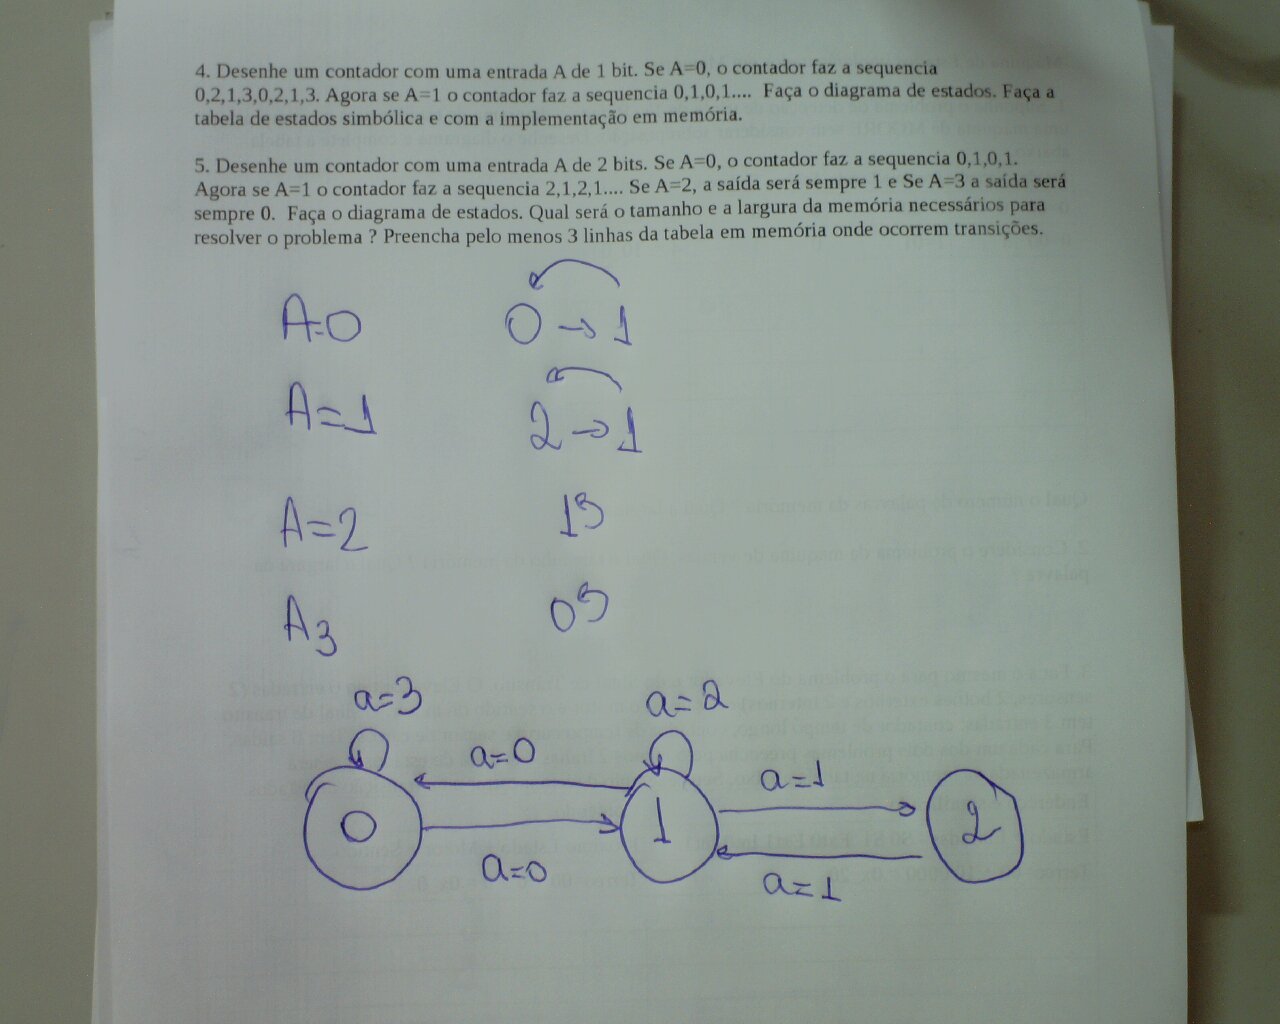 4. Desenhe um contador com uma entrada A de 1 bit. Se A=0, o contador faz a sequencia
0,2,1,3,0,2,1,3. Agora se A=1 o contador faz a sequencia 0,1,0,1.... Faça o diagrama de estados. Faça a
tabela de estados simbólica e com a implementação em memória.
5. Desenhe um contador com uma entrada A de 2 bits. Se A=0, o contador faz a sequencia 0,1,0,1.
Agora se A=1 o contador faz a sequencia 2,1,2,1.... Se A=2, a saída será sempre 1 e Se A=3 a saída será
sempre 0. Faça o diagrama de estados. Qual será o tamanho e a largura da memória necessários para
resolver o problema ? Preencha pelo menos 3 linhas da tabela em memória onde ocorrem transições.
A=0 0 → 1
A=1 2 → 1
A=2 1
A3 0
a=3 a=2
a=0 a=1
0 1 2
a=0 a=1